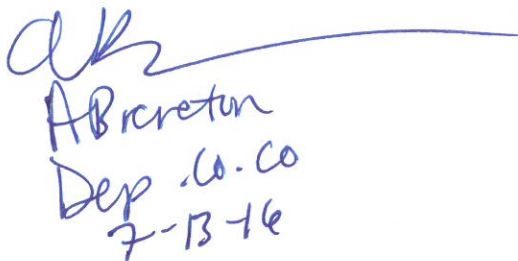 ABrereton
Dep .Co.Co
7-13-16